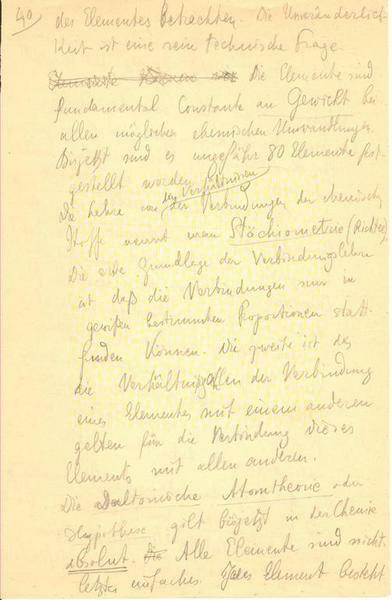 40
des Elementes betrachten. Die Unveränderlich-
keit ist eine rein technische Frage.
Die Elemente sind
fundamental Constante an Gewicht bei
allen möglichen chemischen Umwandlungen.
Bisjetzt sind es ungefähr 80 Elemente fest-
gestellt worden.
Die Lehre von den Verhältnissen der Verbindungen der chemisch
Stoffe nennt man Stöchiometrie (Richter)
Die erste Grundlage der Verbindungslehre
ist daß die Verbindungen nur in
gewißen bestimmten Proportionen statt-
finden können. Die zweite ist daß
die Verhältnißzahlen der Verbindung
eines Elementes mit einem anderen
gelten für die Verbindung dieses
Elements mit allen anderen.
Die Daltonische Atomtheorie oder
Hypothese gilt bisjetzt in der Chemie
absolut. Alle Elemente sind nicht
letztes einfaches. Jedes Element besteht